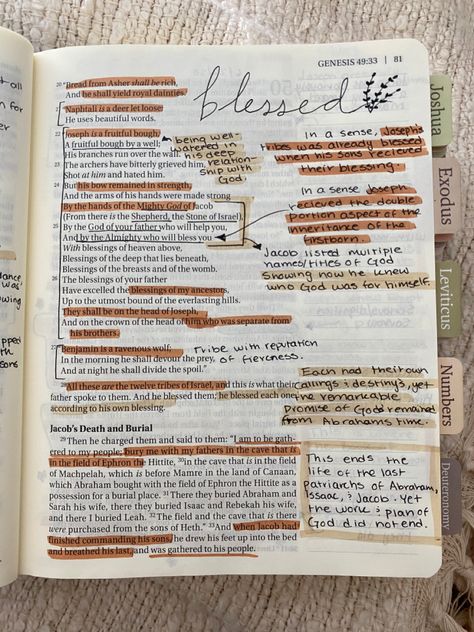 GENESIS 49:33 | 81
blessed
20 "Bread from Asher shall be rich,
And he shall yield royal dainties.
21 "Naphtali is a deer let loose;
He uses beautiful words.
22 "Joseph is a fruitful bough,
A fruitful bough by a well;
His branches run over the wall.
23 The archers have bitterly grieved him,
Shot at him and hated him.
24 But his bow remained in strength,
And the arms of his hands were made strong
By the hands of the Mighty God of Jacob
(From there is the Shepherd, the Stone of Israel),
25 By the God of your father who will help you,
And by the Almighty who will bless you
With blessings of heaven above,
Blessings of the deep that lies beneath,
Blessings of the breasts and of the womb.
26 The blessings of your father
Have excelled the blessings of my ancestors,
Up to the utmost bound of the everlasting hills.
They shall be on the head of Joseph,
And on the crown of the head of him who was separate from
his brothers.
27 "Benjamin is a ravenous wolf;
In the morning he shall devour the prey,
And at night he shall divide the spoil."
28 All these are the twelve tribes of Israel, and this is what their
father spoke to them. And he blessed them; he blessed each one
according to his own blessing.
Jacob's Death and Burial
29 Then he charged them and said to them: "I am to be gath-
ered to my people; bury me with my fathers in the cave that is
in the field of Ephron the Hittite, 30 in the cave that is in the field
of Machpelah, which is before Mamre in the land of Canaan,
which Abraham bought with the field of Ephron the Hittite as a
possession for a burial place. 31 There they buried Abraham and
Sarah his wife, there they buried Isaac and Rebekah his wife,
and there I buried Leah. 32 The field and the cave that is there
were purchased from the sons of Heth." 33 And when Jacob had
finished commanding his sons, he drew his feet up into the bed
and breathed his last, and was gathered to his people.
being well-
watered in
his deep
relation-
ship with
God.
In a sense, Joseph's
tribes was already blessed
when his sons recieved
their blessing.
In a sense Joseph
recieved the double
portion aspect of the
inheritance of the
firstborn.
Jacob listed multiple
names/titles of God
Showing how he knew
who God was for himself.
Tribe with reputation
of fierceness.
Each had their own
callings & destinys, yet
the remarkable
promise of God remained
from Abrahams time.
This ends the
life of the last
patriarchs of Abraham,
Issaac, & Jacob. Yet
the work & plan of
God did not end.
Joshua
Exodus
Leviticus
Numbers
Deuteronomy